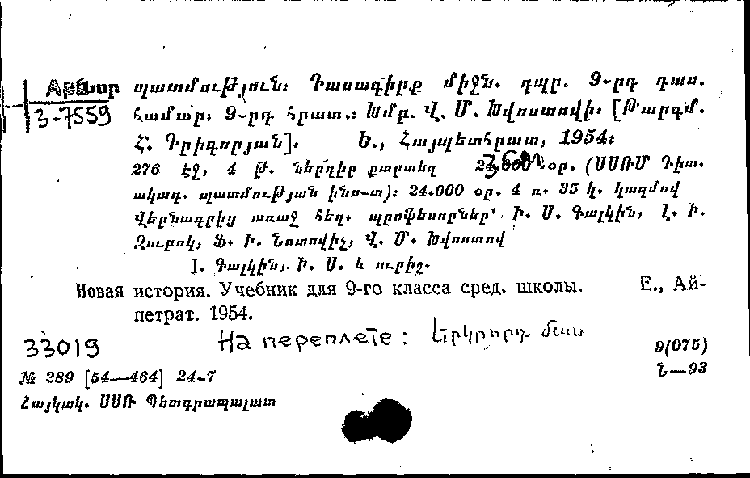 Նոր պատմություն։ Դասագիրք միջն. դպր. 9-րդ դաս.
3-7559 համար. 9-րդ հրատ.։ Խմբ. Վ. Մ. Խվոստովի։ [Թարգմ.
Հ. Գրիգորյան]. Ե., Հայպետհրատ, 1954։
276 էջ, 4 թ. ներդիր քարտեզ 24.000 օր. (ՍՍՌՄ Գիտ.
ակադ. պատմության ինս-տ)։ 24.000 օր. 4 ռ. 35 կ. կազմով
Վերնագրից առաջ հեղ. պրոֆեսորներ՝ Ի. Ս. Գալկին, Լ. Ի.
Զուբոկ, Ֆ. Ի. Նոտովիչ, Վ. Մ. Խվոստով
I. Գալկին, Ի. Ս. և ուրիշ.
Новая история. Учебник для 9-го класса сред. школы. Е., Ай-
петрат. 1954.
На переплете: Երկրորդ մաս
33019 9(075)
№ 289 [54—464] 24-7 Ն—93
Հայկակ. ՍՍՌ Պետգրապալատ